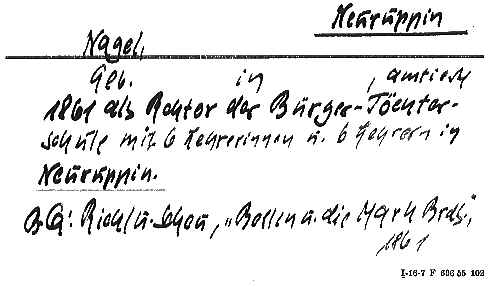 Neuruppin
Nagel,
Geb. in , amtiert
1861 als Rektor der Bürger-Töchter-
schule mit 6 Lehrerinnen u. 6 Lehrern in
Neuruppin.
BQ: Riehl u. Scheu, „Berlin u. die Mark Brdb.",
1861
I-16-7 F 606 55 102